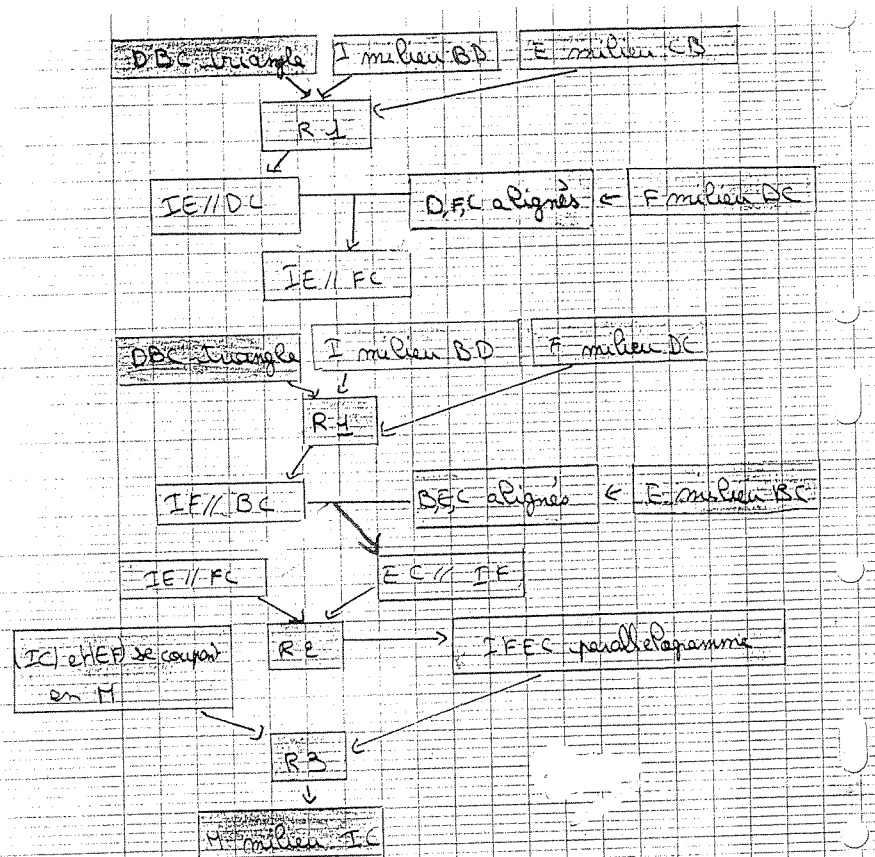 DBC triangle I milieu BD E milieu CB
R 1
IE // DC D,F,C alignés ← F milieu DC
IE // FC
DBC triangle I milieu BD F milieu DC
R 1
IF // BC B,E,C alignés ← E milieu BC
IE // FC EC // IF
(IC) et (EF) se coupant
en M
R 2 IFEC parallélogramme
R 3
M milieu IC